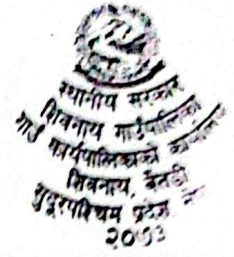 स्थानीय सरकार
शिवनाथ गाउँपालिका
गाउँ कार्यपालिकाको कार्यालय
शिवनाथ, बैतडी
सुदूरपश्चिम प्रदेश, ने
२०७३